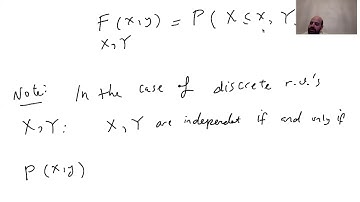 F (x,y) = P( X ≤ x, Y
X,Y
Note: In the case of discrete r.v.'s
X,Y: X,Y are independent if and only if
P(x,y)